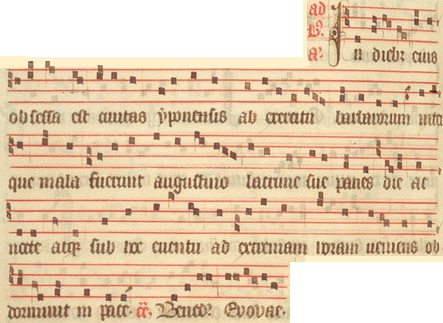 ad In diebz eius
B.
a.
obsessa est ciuitas yponensis ab exercitu barbarorum inter
que mala fuerunt augustino lacrime sue panes die ac
nocte atqz sub hoc euentu ad extremam horam ueniens ob
dormiuit in pace. Bened. Euouae.